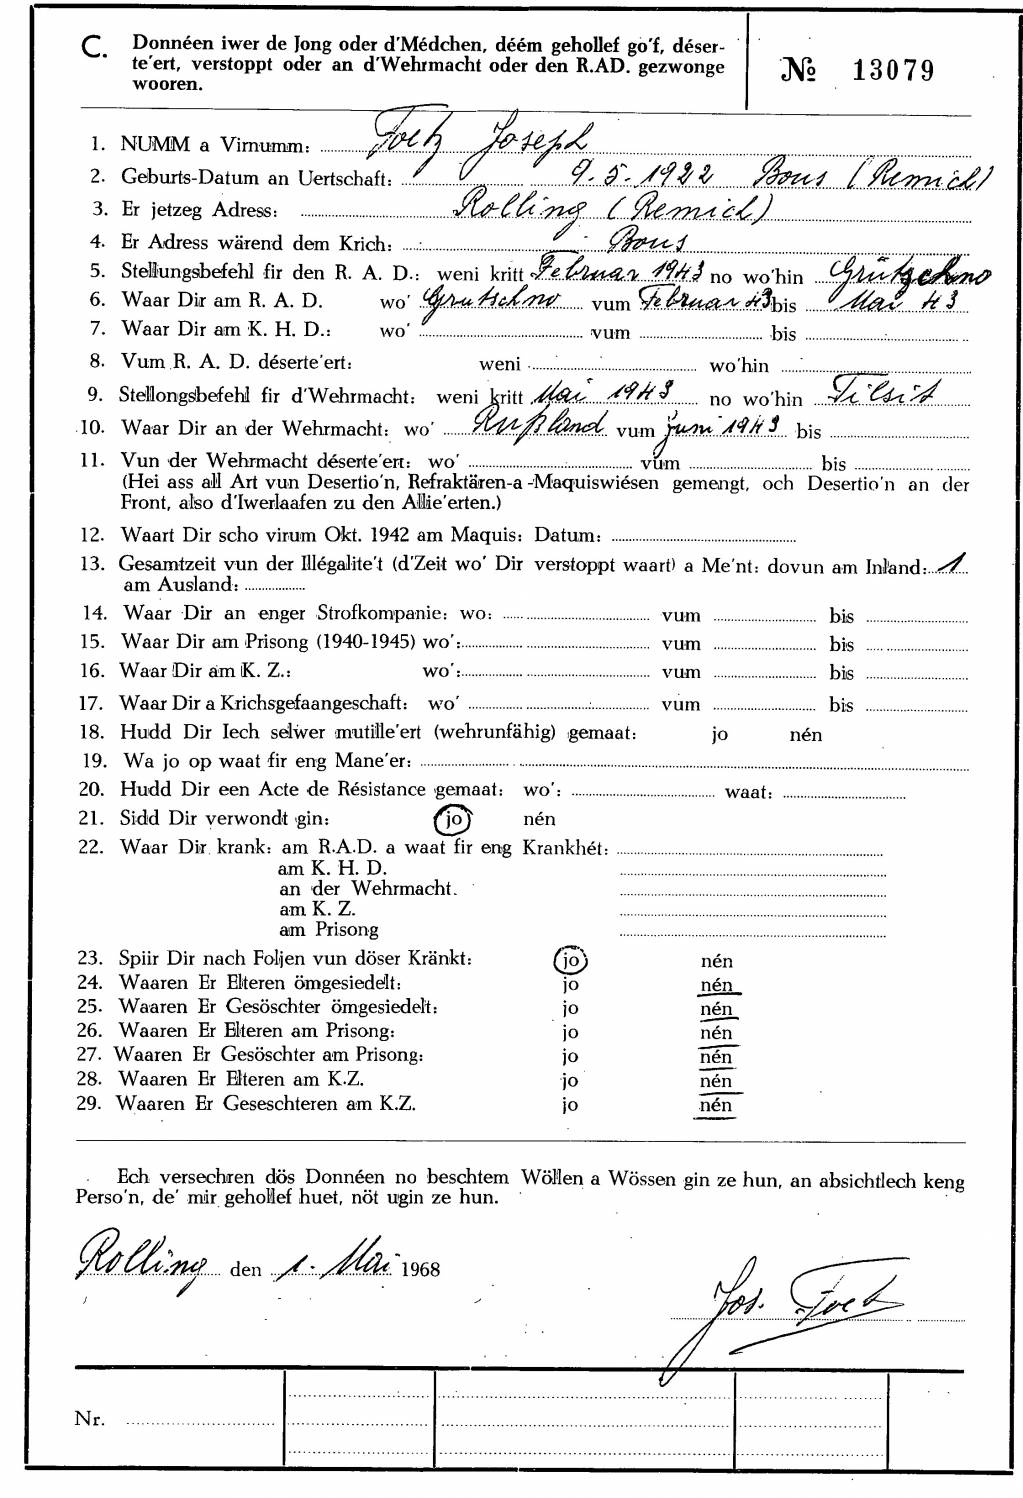 C. Donnéen iwer de Jong oder d'Médchen, déém gehollef go'f, déser-
te'ert, verstoppt oder an d'Wehrmacht oder den R.AD. gezwonge
wooren.
№ 13079
1. NUMM a Virnumm: Foetz Joseph
2. Geburts-Datum an Uertschaft: 9.5.1922 Bous (Remich)
3. Er jetzeg Adress: Rolling (Remich)
4. Er Adress wärend dem Krich: Bous
5. Stellungsbefehl fir den R. A. D.: weni kritt Februar 1943 no wo'hin Grütschno
6. Waar Dir am R. A. D. wo' Grutschno vum Februar 43 bis Mai 43
7. Waar Dir am K. H. D.: wo' vum bis
8. Vum R. A. D. déserte'ert: weni wo'hin
9. Stellongsbefehl fir d'Wehrmacht: weni kritt Mai 1943 no wo'hin Tilsit
10. Waar Dir an der Wehrmacht: wo' Rußland vum Juni 1943 bis
11. Vun der Wehrmacht déserte'ert: wo' vum bis
(Hei ass all Art vun Desertio'n, Refraktären-a-Maquiswiésen gemengt, och Desertio'n an der
Front, also d'Iwerlaafen zu den Allie'erten.)
12. Waart Dir scho virum Okt. 1942 am Maquis: Datum:
13. Gesamtzeit vun der Illégalite't (d'Zeit wo' Dir verstoppt waart) a Me'nt: dovun am Inland: 1
am Ausland:
14. Waar Dir an enger Strofkompanie: wo: vum bis
15. Waar Dir am Prisong (1940-1945) wo': vum bis
16. Waar Dir am K. Z.: wo': vum bis
17. Waar Dir a Krichsgefaangeschaft: wo' vum bis
18. Hudd Dir Iech selwer mutille'ert (wehrunfähig) gemaat: jo nén
19. Wa jo op waat fir eng Mane'er:
20. Hudd Dir een Acte de Résistance gemaat: wo': waat:
21. Sidd Dir verwondt gin: jo nén
22. Waar Dir krank: am R.A.D. a waat fir eng Krankhét:
am K. H. D.
an der Wehrmacht.
am K. Z.
am Prisong
23. Spiir Dir nach Foljen vun döser Kränkt: jo nén
24. Waaren Er Elteren ömgesiedelt: jo nén
25. Waaren Er Gesöschter ömgesiedelt: jo nén
26. Waaren Er Elteren am Prisong: jo nén
27. Waaren Er Gesöschter am Prisong: jo nén
28. Waaren Er Elteren am K.Z. jo nén
29. Waaren Er Geseschteren am K.Z. jo nén
Ech versechren dös Donnéen no beschtem Wöllen a Wössen gin ze hun, an absichtlech keng
Perso'n, de' mir gehollef huet, nöt ugin ze hun.
Rolling den 1. Mai 1968
Jos. Foetz
Nr.